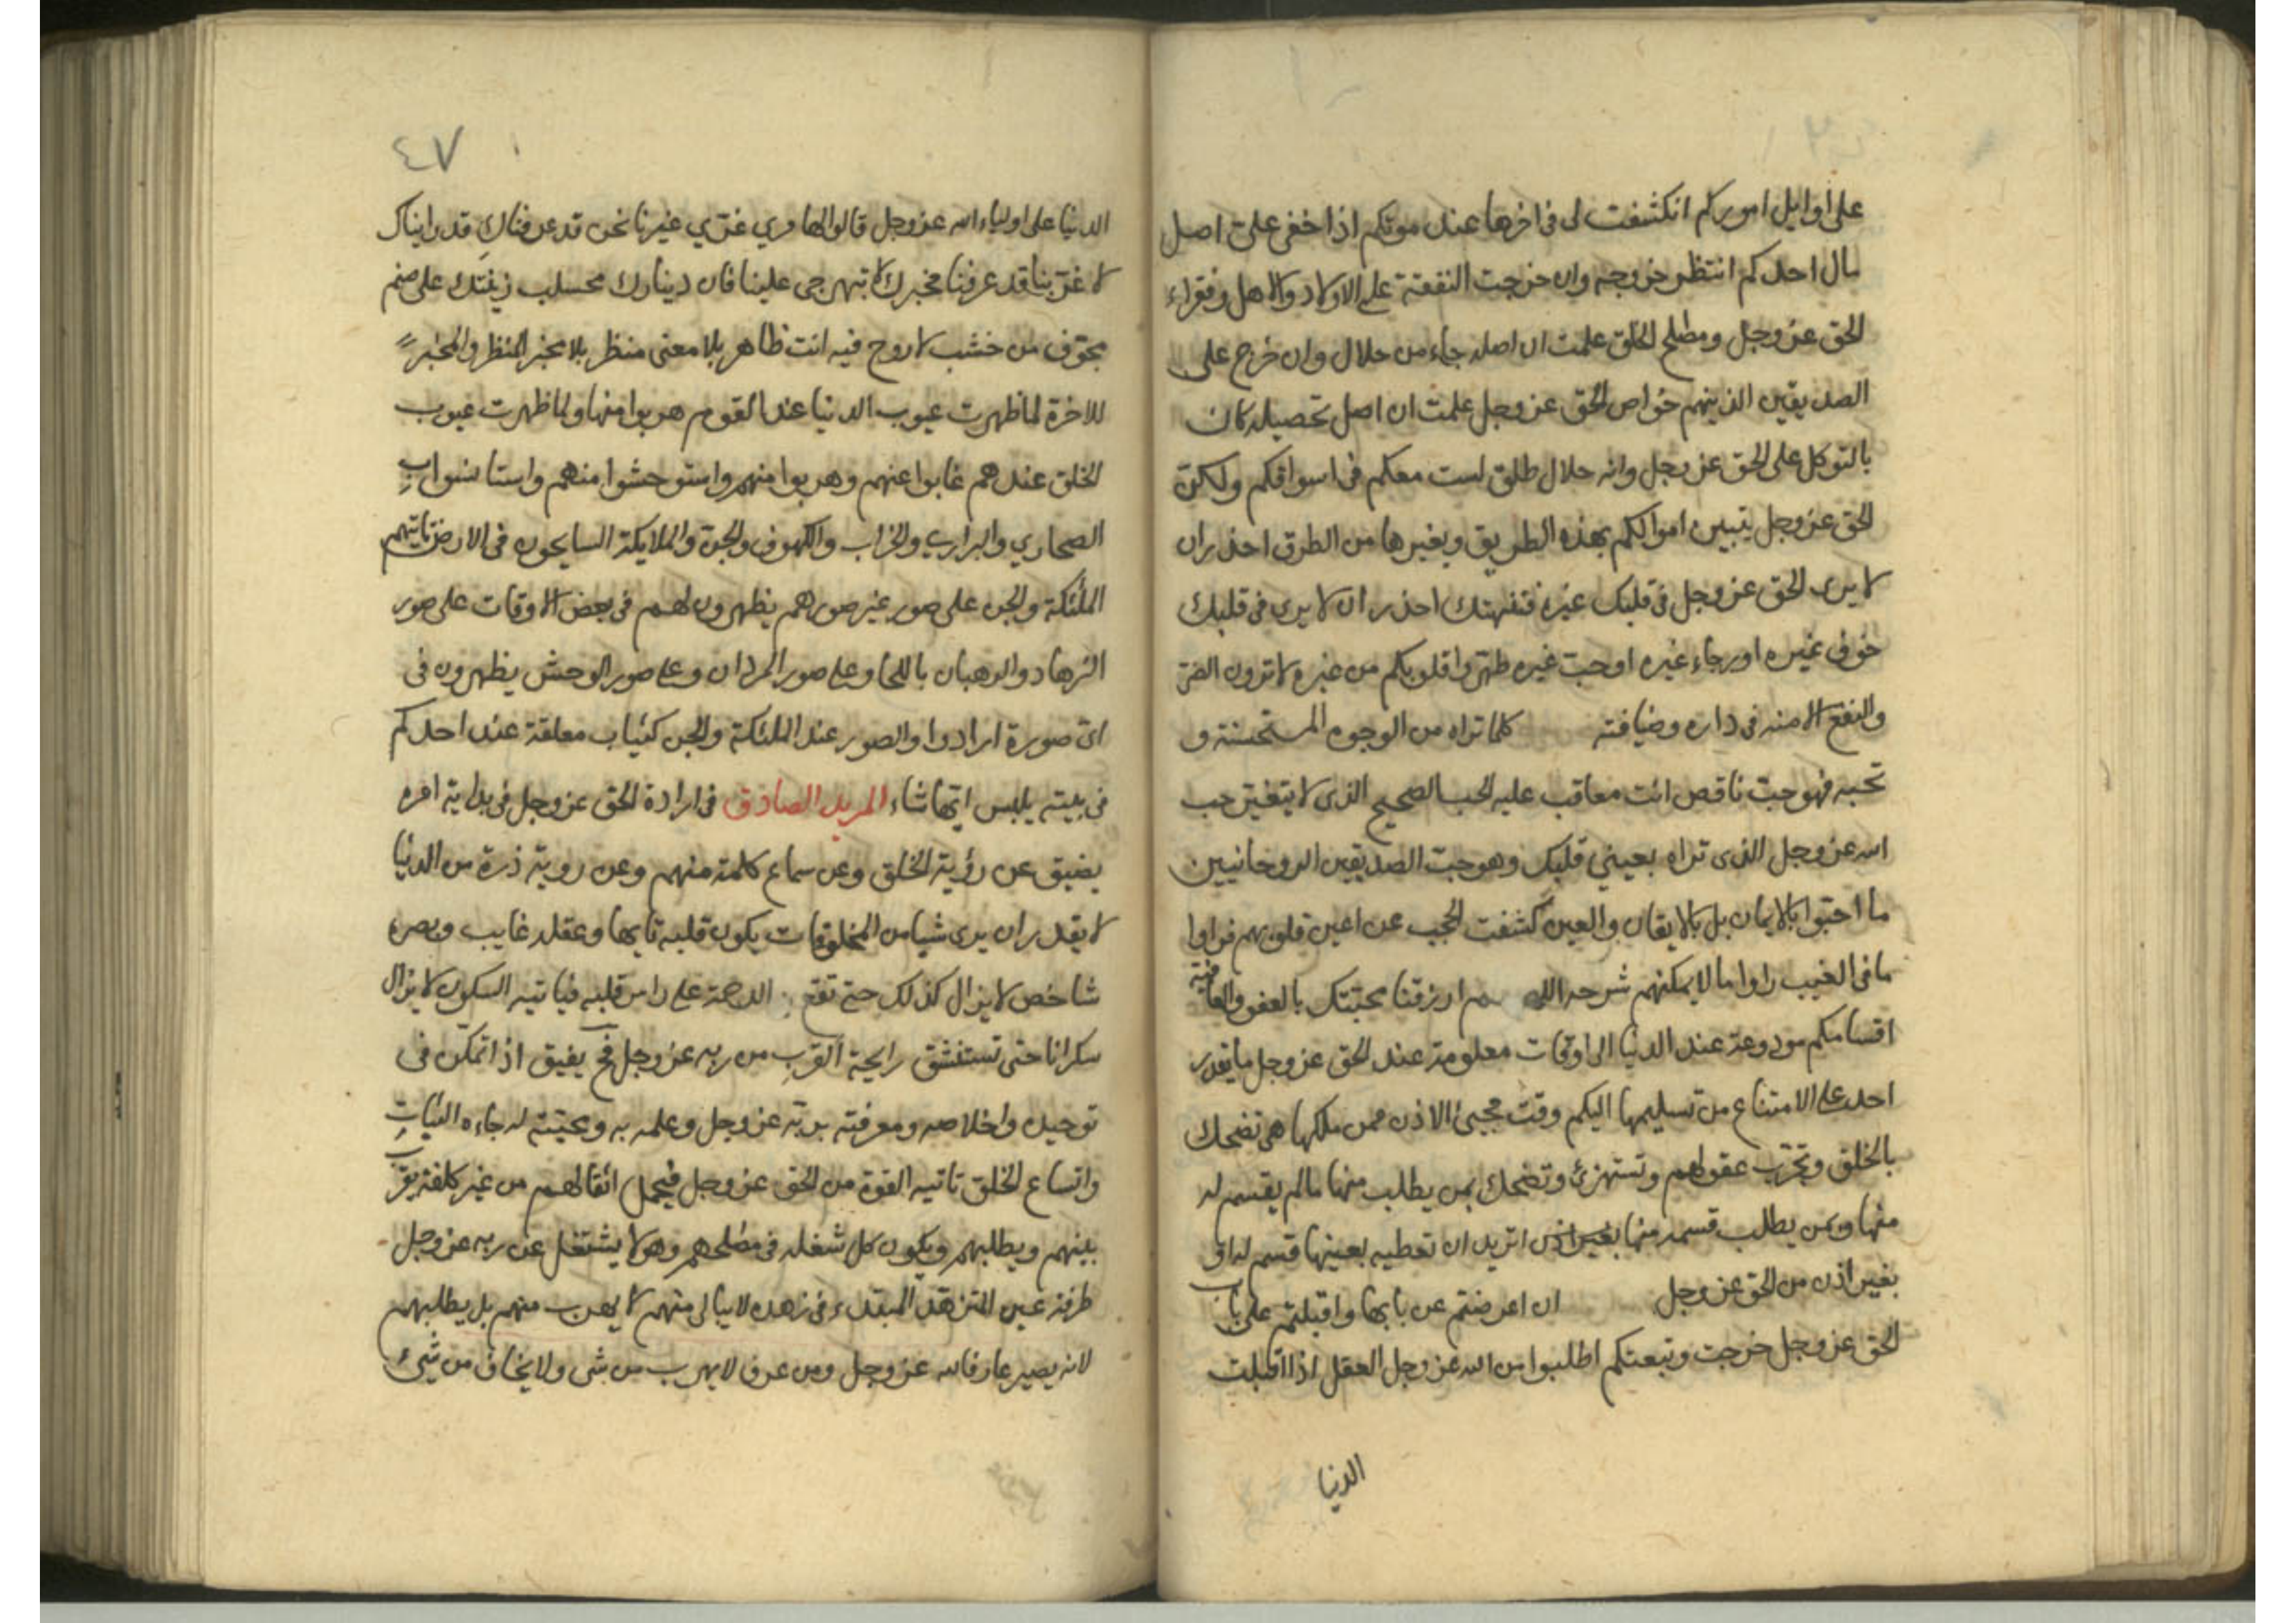 على اوايل اموركم انكشفت لى فى اخرها عند موتكم اذا خفى علىّ اصل
مال احدكم انتظر خروجه وان خرجت النفقة على الاولاد والاهل وفقراء
الحق عز وجل ومصلح الخلق علمت ان اصله جاء من حلال وان خرج على
الصديقين الذينهم خواص الحق عز وجل علمت ان اصل تحصيله كان
بالتوكل على الحق عز وجل وانه حلال طلق لست معكم فى اسواقكم ولكنّ
الحق عز وجل يتبين اموالكم بهذه الطريق وبغيرها من الطرق احذر ان
لا يرى الحق عز وجل فى قلبك غيره فتفهتك احذر ان لا يرى فى قلبك
خوف غيره او رجاء غيره او حبّ غيره طهروا قلوبكم من غيره لا ترون الضرّ
والنفع الا منه فى داره وضيافته كلما تراه من الوجوه المستحسنة و
تحبه فهو حبّ ناقص انت معاقب عليه الحب الصحيح الذى لا يتغيّر حب
الله عز وجل الذى تراه بعيني قلبك وهو حبّ الصديقين الروحانيين
ما احبّوا بالايمان بل بالايقان والعين كشفت الحجب عن اعين قلوبهم فراوا
ما فى الغيب راوا ما لا يمكنهم شرحه اللهم ارزقنا محبتك بالعفو والعافية
اقسامكم مودوعة عند الدنيا الى اوقات معلومة عند الحق عز وجل ما يقدر
احد على الامتناع من تسليمها اليكم وقت مجيئ الاذن ممن ملكها هى تضحك
بالخلق وتخرّب عقولهم وتستهزئ وتضحك بمن يطلب منها ما لم يقسم له
منها وبمن يطلب قسمه منها بغير اذن اتريد ان تعطيه بعينها قسم له او
بغير اذن من الحق عز وجل ان اعرضتم عن بابها واقبلتم على باب
الحق عز وجل خرجت وتبعتكم اطلبوا من الله عز وجل العقل اذا اقبلت
الدنيا
٤٧
الدنيا على اولياء الله عز وجل قالوا لها مري غرّي غيرنا نحن قد عرفناكِ قد رايناك
لا غرّ بنا قد عرفنا مخبرك لا تبهرجى علينا فان دينارك زينتك على صنم
مجوّف من خشب لا روح فيه انت ظاهر بلا معنى منظر بلا مخبر المنظر والمخبر
للاخرة لما ظهرت عيوب الدنيا عند القوم هربوا منها ولما ظهرت عيوب
الخلق عندهم غابوا عنهم وهربوا منهم واستوحشوا منهم واستانسوا بِ
الصحاري والبراري والخراب والكهوف والجن والملايكة السايحون فى الارض تاتيهم
الملئكة والجن على صور غير صورهم يظهرون لهم فى بعض الاوقات على صور
الزهاد والرهبان باللحا وعلى صور المردان وعلى صور الوحش يظهرون فى
اىّ صورة ارادوا والصور عند الملئكة والجن كثياب معلقة عند احدكم
فى بيته يلبس ايّها شاء المريد الصادق فى ارادة الحق عز وجل فى بداية امره
يضيق عن رؤية الخلق وعن سماع كلمة منهم وعن روية ذرة من الدنيا
لا يقدر ان يرى شيا من المخلوقات يكون قلبه تايها وعقله غايب وبصره
شاخص لا يزال كذلك حتى تقع الرحمة على راس قلبه فياتيه السكون لا يزال
سكرانا حتى تستنشق رايحة القرب من ربه عز وجل فح يفيق اذا تمكن فى
توحيده واخلاصه ومعرفته بربّه عز وجل وعلمه به ومحبّته له جاءه الثبات
واتساع الخلق تاتيه القوة من الحق عز وجل فيحمل اثقالهم من غير كلفة يقرب
بينهم ويطلبهم ويكون كل شغله فى مصلحهم وهو لا يشتغل عن ربه عز وجل
طرفة عين المتزهّد المبتدء فى زهده لا يبالى منهم لا يهرب منهم بل يطلبهم
لانه يصير عارفا لله عز وجل ومن عرف لا يهرب من شى ولا يخاف من شيئ